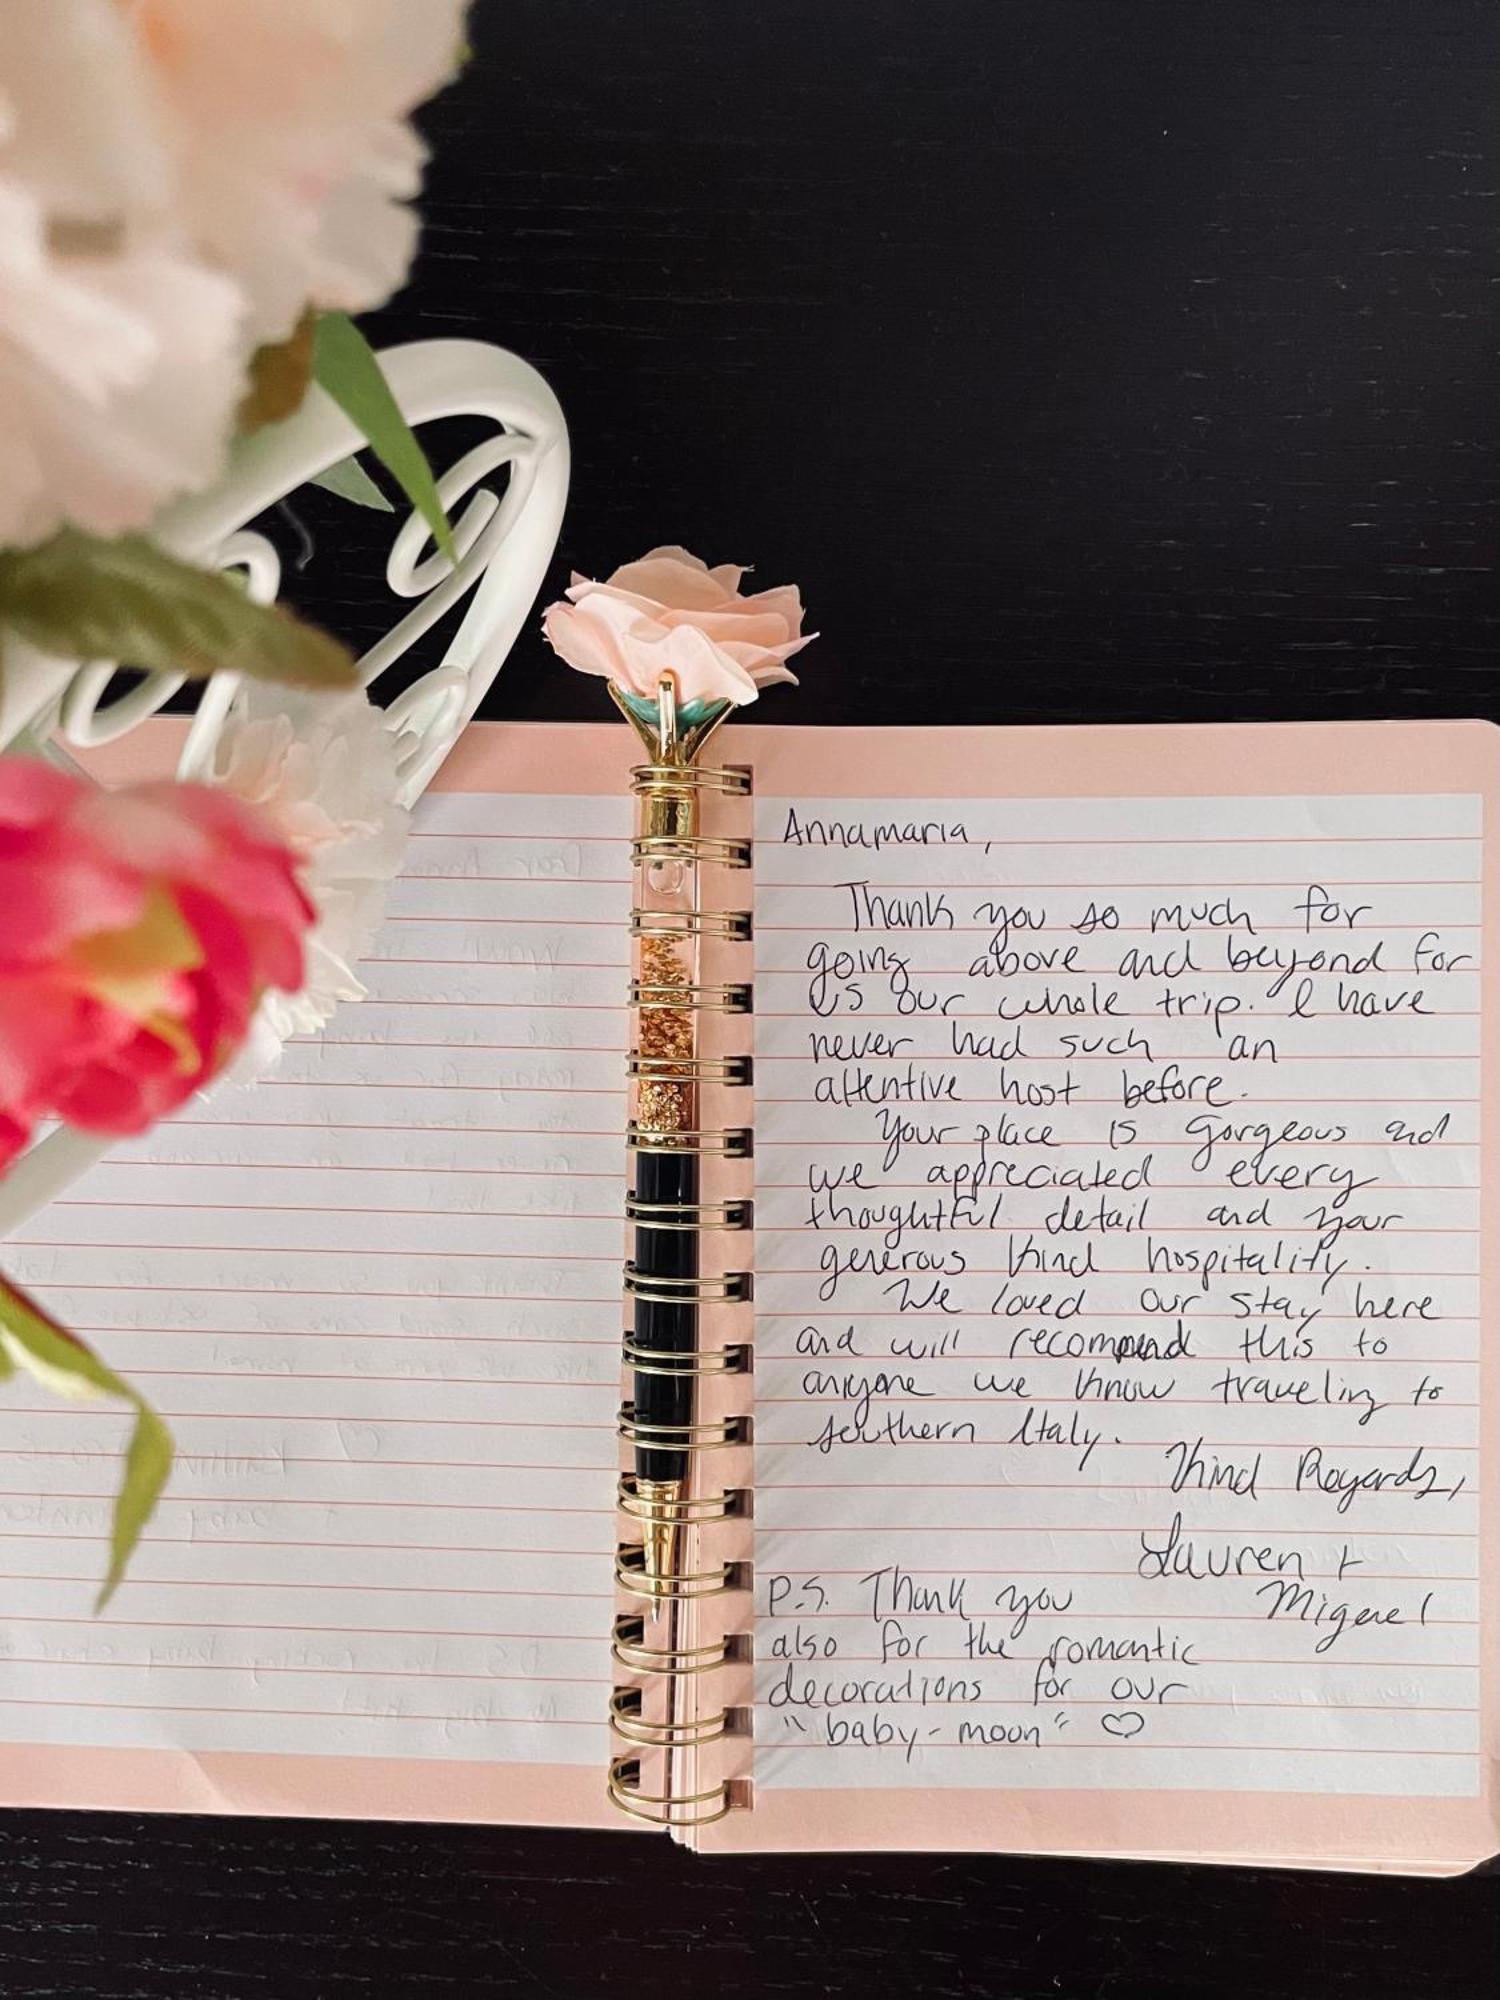 Annamaria,
Thank you so much for
going above and beyond for
us our whole trip. I have
never had such an
attentive host before.
Your place is gorgeous and
we appreciated every
thoughtful detail and your
generous kind hospitality.
We loved our stay here
and will recommend this to
anyone we know traveling to
southern Italy.
Kind Regards,
Lauren +
Miguel
P.S. Thank you
also for the romantic
decorations for our
"baby-moon" ♡